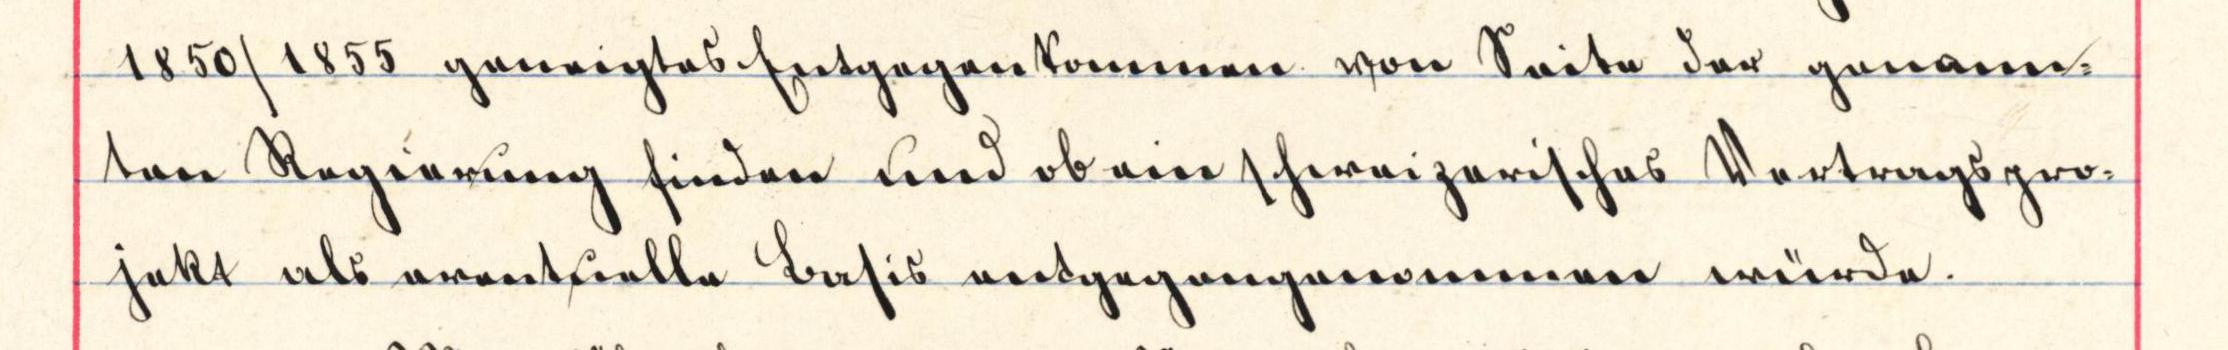 1850/1855 geneigtes Entgegenkommen von Seite der genann-
ten Regierung finden und ob ein schweizerisches Vertragspro-
jekt als eventuelle Basis entgegengenommen würde.